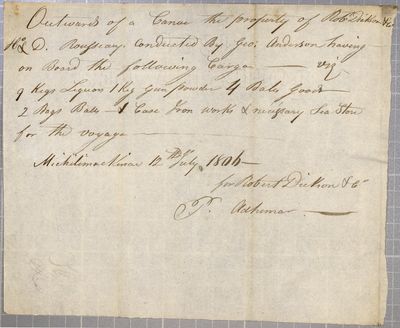 Outwards of a Canoe the property of Robt. Dickson & Co
D. Rousseau. Conducted By Geo. Anderson having
on Board the following Cargo — viz
9 Kegs Liquor 1 Keg Gun powder 4 Bales Goods
2 Bags Balls — 1 Case Iron works & necessary Sea Store
for the voyage —
Michilimackinac 12th July 1806 —
for Robert Dickson & Co
P. Adhemar —